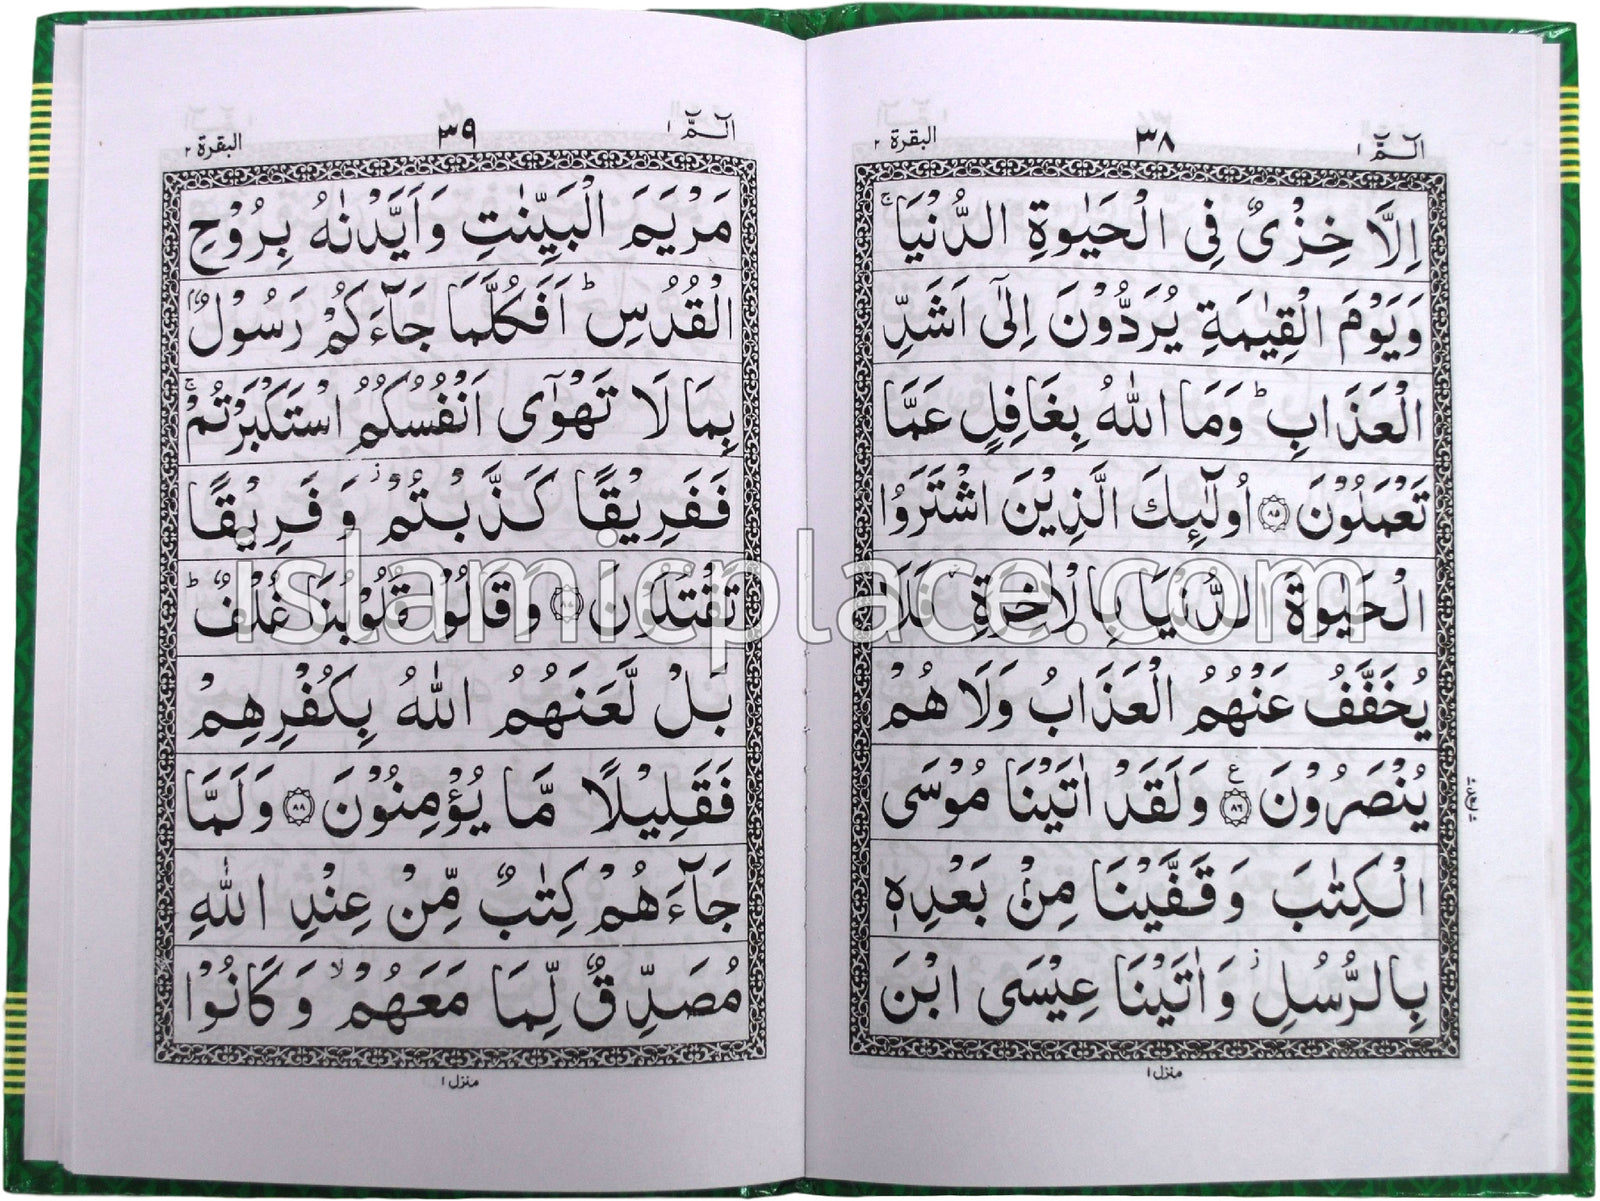 الٓـمّٓ ١
٣٨
البقرة ٢
اِلَّا خِزْیٌ فِی الْحَیٰوةِ الدُّنْیَا ۚ
وَیَوْمَ الْقِیٰمَةِ یُرَدُّوْنَ اِلٰۤی اَشَدِّ
الْعَذَابِ ؕ وَمَا اللّٰهُ بِغَافِلٍ عَمَّا
تَعْمَلُوْنَ ﴿٨٥﴾ اُولٰٓئِكَ الَّذِیْنَ اشْتَرَوُا
الْحَیٰوةَ الدُّنْیَا بِالْاٰخِرَةِ ؗ فَلَا
یُخَفَّفُ عَنْهُمُ الْعَذَابُ وَلَا هُمْ
یُنْصَرُوْنَ ﴿٨٦﴾ ع وَلَقَدْ اٰتَیْنَا مُوْسَی
الْكِتٰبَ وَقَفَّیْنَا مِنْۢ بَعْدِهٖ
بِالرُّسُلِ ؗ وَاٰتَیْنَا عِیْسَی ابْنَ
منزل ١
الٓـمّٓ ١
٣٩
البقرة ٢
مَرْیَمَ الْبَیِّنٰتِ وَاَیَّدْنٰهُ بِرُوْحِ
الْقُدُسِ ؕ اَفَكُلَّمَا جَآءَكُمْ رَسُوْلٌۢ
بِمَا لَا تَهْوٰۤی اَنْفُسُكُمُ اسْتَكْبَرْتُمْ ۚ
فَفَرِیْقًا كَذَّبْتُمْ ؗ وَفَرِیْقًا
تَقْتُلُوْنَ ﴿٨٧﴾ وَقَالُوْا قُلُوْبُنَا غُلْفٌ ؕ
بَلْ لَّعَنَهُمُ اللّٰهُ بِكُفْرِهِمْ
فَقَلِیْلًا مَّا یُؤْمِنُوْنَ ﴿٨٨﴾ وَلَمَّا
جَآءَهُمْ كِتٰبٌ مِّنْ عِنْدِ اللّٰهِ
مُصَدِّقٌ لِّمَا مَعَهُمْ ۙ وَكَانُوْا
منزل ١
islamicplace.com